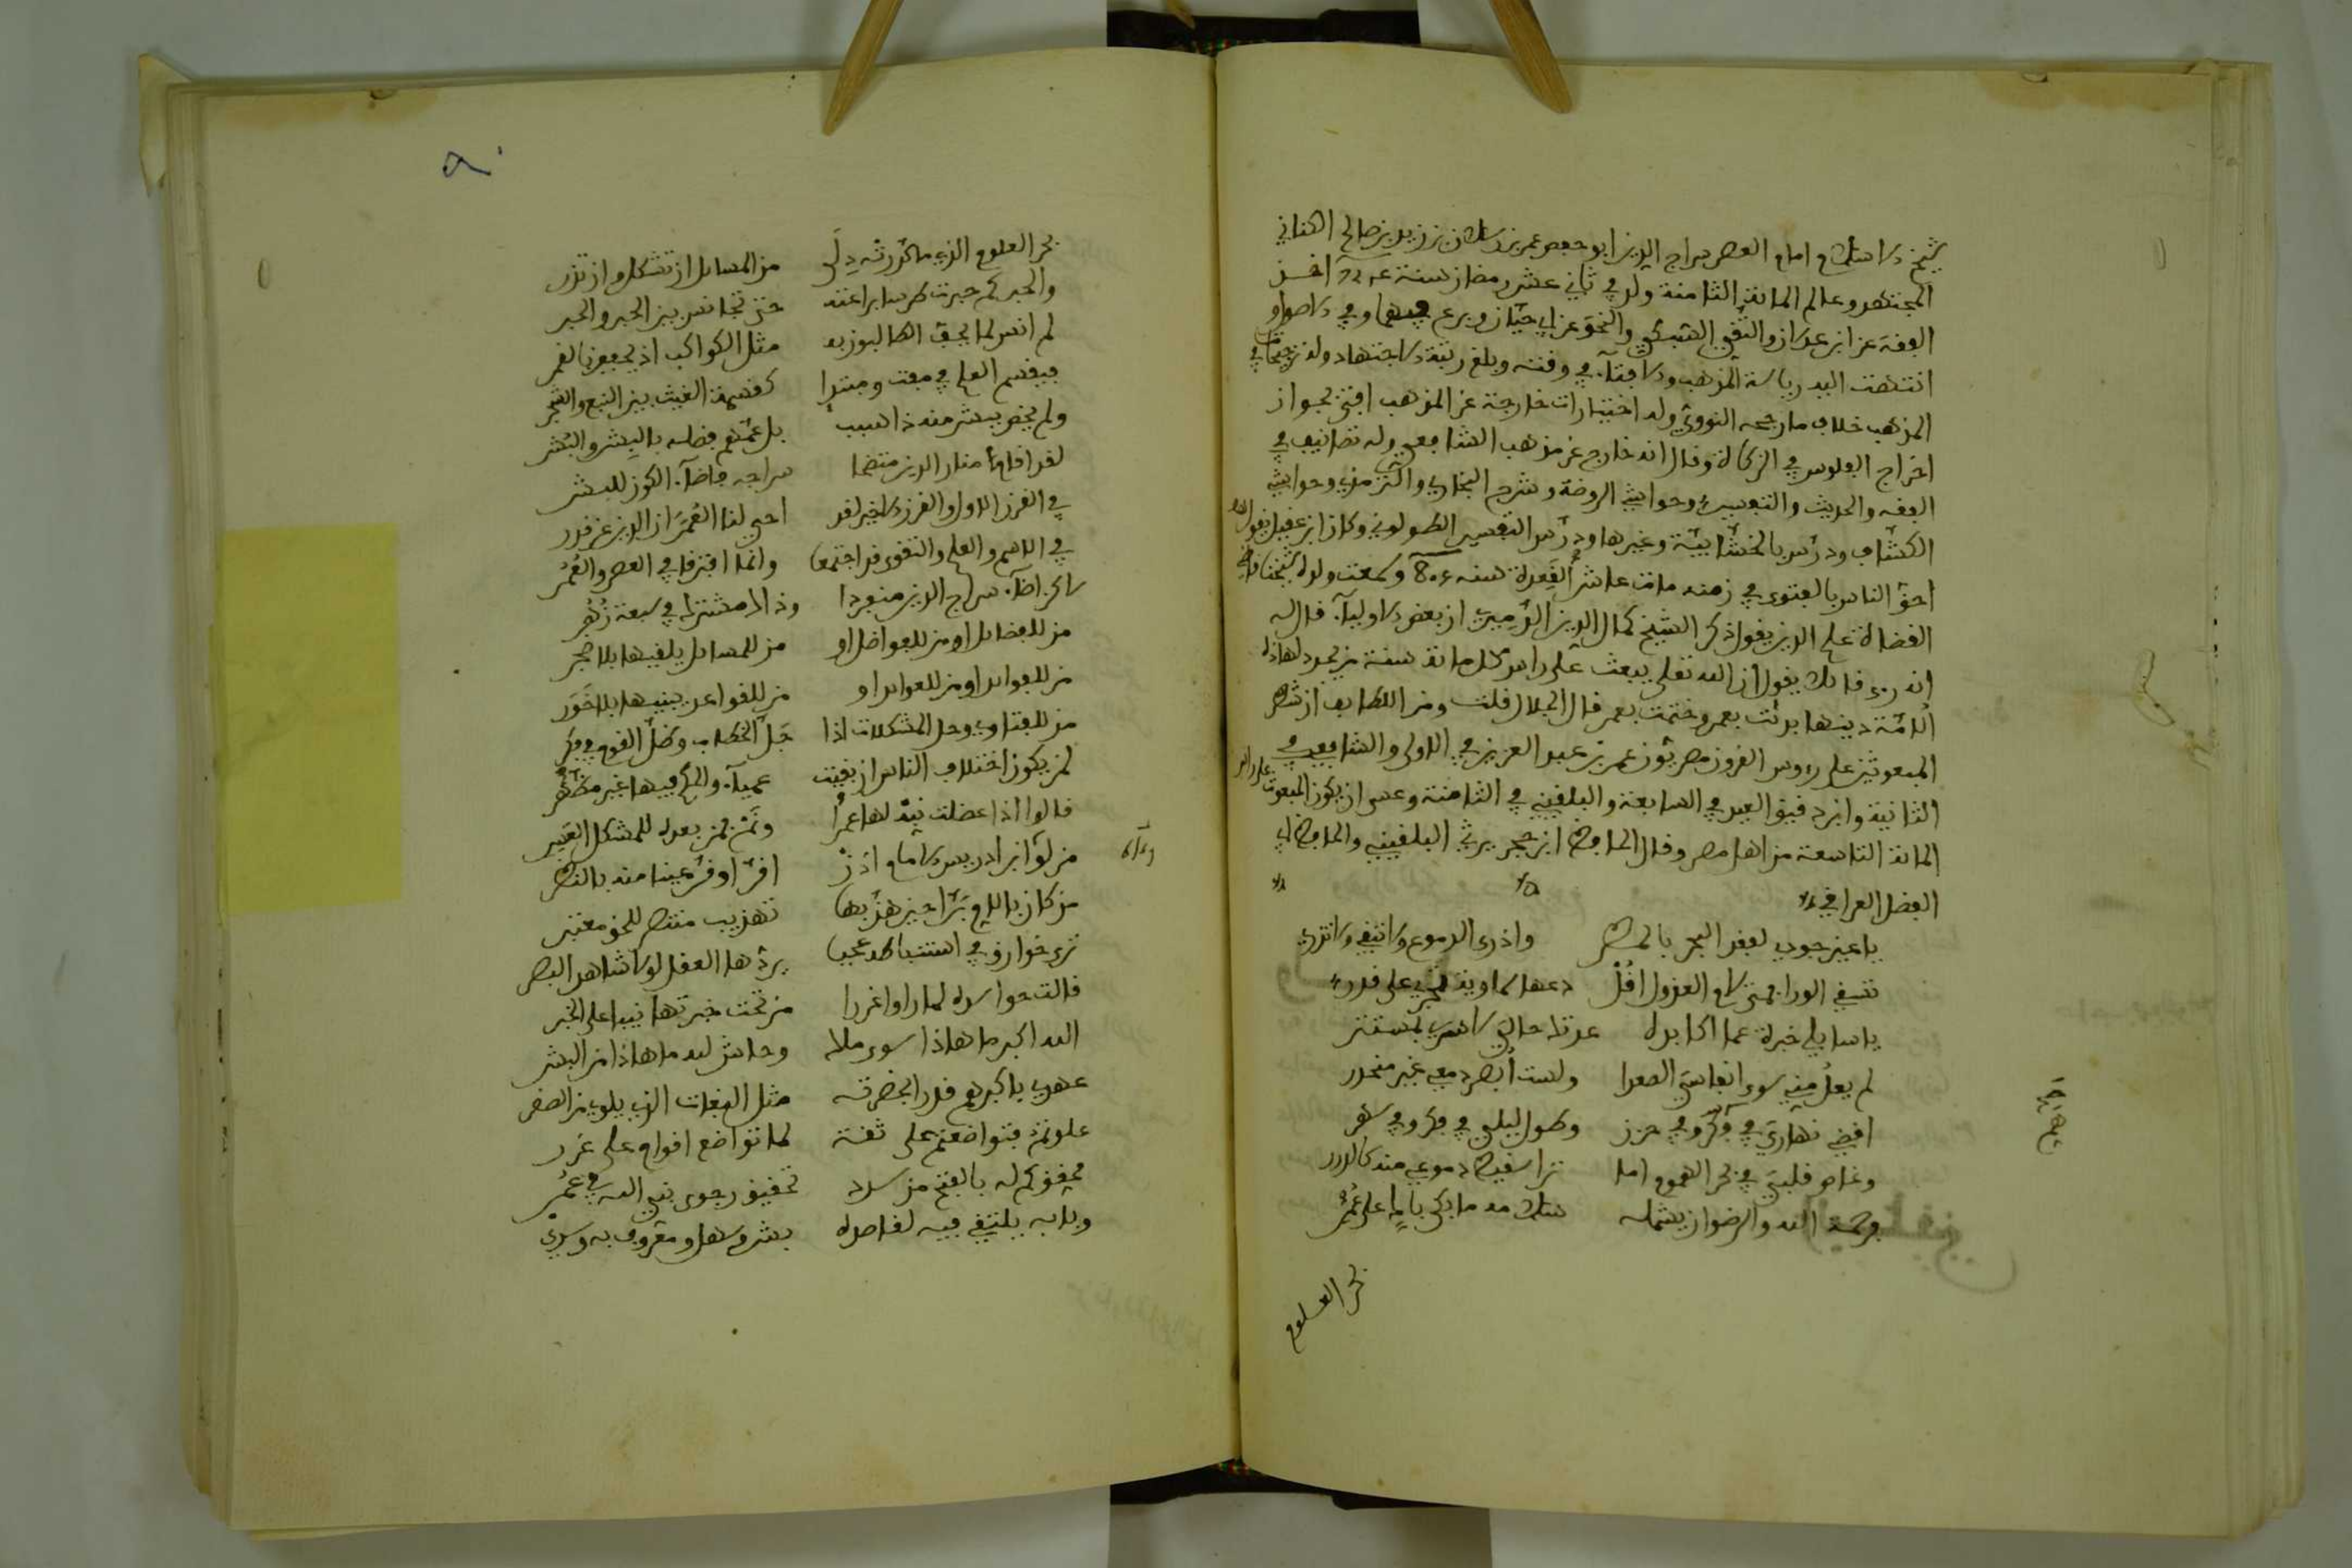 شيخ الاسلام امام العصر سراج الدين ابو حفص عمر بن رسلان بن نصير بن صالح الكناني
المجتهد وعالم المائة الثامنة ولد في ثاني عشر رمضان سنة اخذ
الفقه عن ابن عدلان والتقي السبكي والنحو عن ابي حيان وبرع في الفقه وفي الاصول و
انتهت اليه رياسة المذهب والافتآء في وقته وبلغ رتبة الاجتهاد وله ترجيحات في
المذهب خلاف ما رجحه النووي وله اختيارات خارجة عن المذهب افتى بجواز
اخراج الفلوس في الزكاة وقال انه خارج عن مذهب الشافعي وله تصانيف في
الفقه والحديث والتفسير وحواشي الروضة وشرح البخاري والترمذي وحواشي
الكشاف ودرّس بالخشابية وغيرها ودرّس التفسير الطولوني وكان ابن عقيل يقول هو
احق الناس بالفتوى في زمنه مات عاشر القعدة سنه 805 وسمعت ولده شيخنا قاضي
القضاة علم الدين يقول ذكر الشيخ كمال الدين الدّميري ان بعض الاوليآء قال له
انه رءى قائلا يقول ان الله تعلى يبعث على راس كل مائة سنة من يجدد لهاذه
الامّة دينها بدئت بعمر وختمت بعمر قال الجلال قلت ومن اللطايف ان شطر
المبعوثين على رءوس القرون مصريّون عمر بن عبد العزيز في الاولى والشافعي في
الثانية وابن دقيق العيد في السابعة والبلقيني في الثامنة وعسى ان يكون المبعوث على راس
المائة التاسعة من اهل مصر وقال الحافظ ابن حجر يرثي البلقيني والحافظ ابي
الفضل العراقي
يا عين جودي لفقد البحر بالمطر واذري الدموع ولا تبقي ولا تذري
تسقي الورا فمتى لام العذول اقُلْ دعها سماوية تجري على قدر
يا سايلي خبرة عما اكابده عدتك حالي لا سري بمستتر
لم يعلُ مني سوى انفاسيَ الصعدا ولست أُبصر دمعي غير منحدر
اقضي نهاريَ في فكر وفي حزن وطول ليلي في فكر وفي سهر
وغاص قلبيَ في بحر الهموم اما ترا سقيط دموعي منه كالدرر
فرحمة الله والرضوان يشمله سلام ما بكى باكٍ على عُمر
بحر العلوم
بحر العلوم الذي ما كدّرته دِلَى من المسايل ان تشكل وان تدر
والحبر كم حبرت طرسا براعته حتى تجانس بين الحبر والحبر
لم انس لما يحفّ الطالبون به مثل الكواكب اذ يحففن بالقمر
فيقسم العلم في مفت ومبتدا كقسمة الغيث بين النبع والشجر
ولم يخص ببشر منه ذا نسب بل عمّهم فضله بالبِشر والبُشر
لقد اقام منار الدين متضحا سراجه فاضآء الكون للبشر
في القرن الاول والقرن الاخير لقد احيى لنا العُمَرَان الدين عن قدر
في الاسم والعلم والتقوى قد اجتمعا وانما افترقا في العصر والعُمُر
لاكن اضآء سراج الدين منفردا وذاك مشترك في سبعة زُهُر
من للفضايل او من للفواضل او من للمسايل يلقيها بلا ضجر
من للفوايد او من للعوايد او من للقواعد يبنيها بلا خَوَر
من للفتاوي وحل المشكلات اذا جَلّ الخطاب وظلّ القوم في فكر
لمن يكون اختلاف الناس ان بقيت عميآء والحكم فيها غير مستطر
قالوا اذا اعضلت نَبِّه لها عمرا ونَمْ فمن بعده للمشكل العَسِر
من لو رآه ابن ادريس الامام اذنْ اقرّ او قرّ عينا منه بالنظر
من كان بالام بَرّا حين هذّبها تهذيب منتصر للحق معتبر
ترى خوارق في استنباطه عجبا يردّها العقل لولا شاهد البصر
قالت حواسده لما راوا غررا من تحت خبرتها نبا على الخبر
الله اكبر ما هاذا سوى ملك وحاش لله ما هاذا من البشر
عهدي باكبرهم قدرا بحضرته مثل البغاث الذي يلوي من الصقر
علوتمُ فتواضعتم على ثقة لما تواضع اقوام على غرر
محقق كم له بالفتح من سدد تحقيق رجوى نبي الله في عُمر
وبابه يلتقي فيه لقاصده بشر وسهل ومعروف به وسري